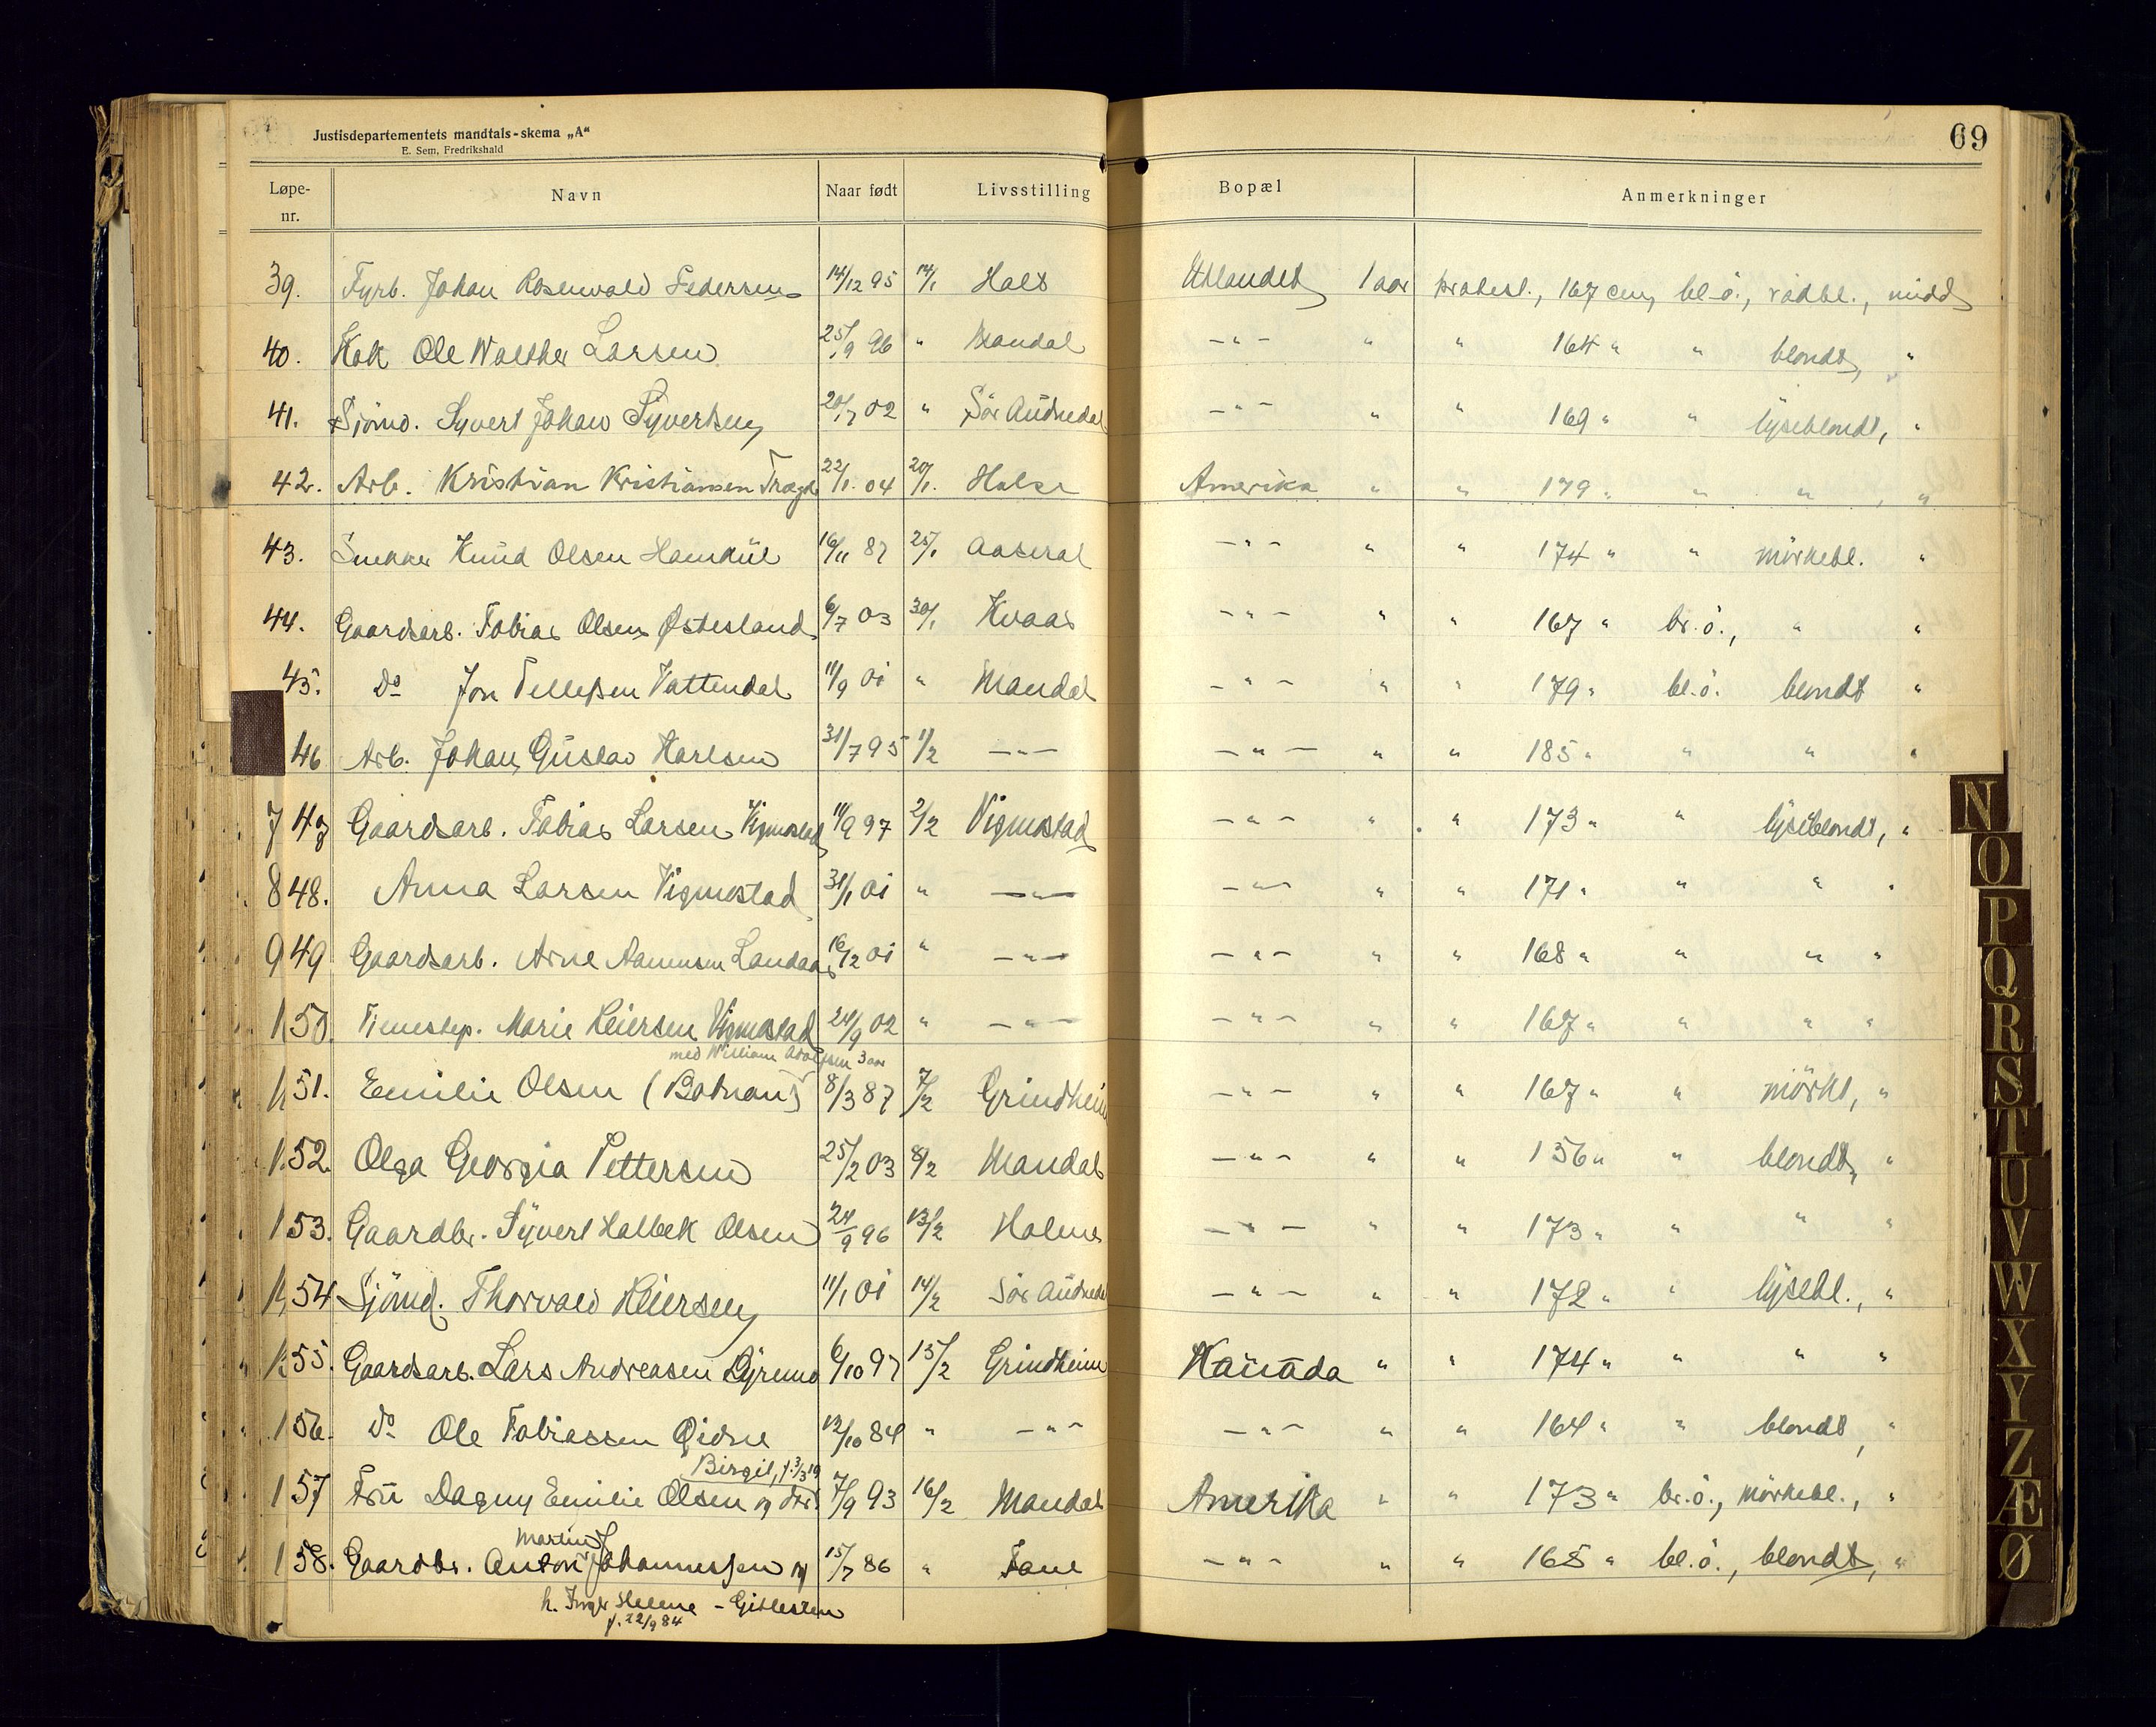 Justisdepartementets mandtals-skema „A“
E. Sem, Fredrikshald
69
Løpe-nr. Navn Naar født Livsstilling Bopæl Anmerkninger
39. Fyrb. Johan Rosenvald Pedersen 14/12 95 14/1 Halse Utlandet 1 aar protest., 167 cm, bl. ö., rødbl., midd
40. Kok Ole Walther Larsen 25/9 96 " Mandal -"- " " 164 " " blondt, "
41. Sjömd. Syvert Johan Syvertsen 20/7 02 " Sör Audnedal -"- " " 169 " " lyseblondt, "
42. Arb. Kristian Kristiansen Tregde 22/1 04 20/1 Halse Amerika " " 179 " " " , "
43. Snekker Knud Olsen 16/11 87 25/1 Aaseral -"- " " 174 " " mörkebl. "
44. Gaardsarb. Tobias Olsen Østesland 6/7 03 30/1 Kvaas -"- " " 167 " br. ö., " "
45. Do Jon Tellefsen Vattendal 11/9 01 " Mandal -"- " " 179 " bl. ö. blondt "
46 Arb. Johan Gustav Karlsen 31/7 95 1/2 -"- -"- " " 185 " " " "
7 47 Gaardsarb. Tobias Larsen Vigmostad 11/9 97 2/2 Vigmostad -"- " " 173 " " lyseblondt, "
8 48. Anna Larsen Vigmostad 31/1 01 " -"- -"- " " 171 " " " "
9 49 Gaardsarb. Arne Aanensen Landaas 16/12 01 " -"- -"- " " 168 " " " "
1 50. Tjenestep. Marie Reiersen Vigmostad 24/9 02 " -"- -"- " " 167 " " " "
med William Adolfsen 3 aar
1 51. Emilie Olsen (Botnan) 8/3 87 7/2 Grindheim -"- " " 167 " " mörkt, "
1 52. Olga Georgia Pettersen 25/2 03 8/2 Mandal -"- " " 156 " " blondt, "
1 53. Gaardbr. Syvert Halbek Olsen 24/9 96 13/2 Holme -"- " " 173 " " " "
1 54 Sjömd. Thorvald Reiersen 11/1 01 14/2 Sör Audnedal -"- " " 172 " " lysebl., "
1 55. Gaardsarb. Lars Andreasen 6/10 97 15/2 Grindheim Kanada " " 174 " " " "
1 56. Do Ole Tobiassen Öidne 13/10 84 " -"- -"- " " 164 " " blondt, "
Birgit, f. 3/3 19
1 57 Fru Dagny Emilie Olsen og 7/9 93 16/2 Mandal Amerika " " 173 " br. ö., mörkebl., "
Martin
1 58. Gaardbr. Anton Johannessen og 15/7 86 " -"- " " 168 " bl. ö., blondt, "
h. Inger Helene - Gitlesen
f. 22/9 84
N
O
P
Q
R
S
T
U
V
W
X
Y
Z
Æ
Ø